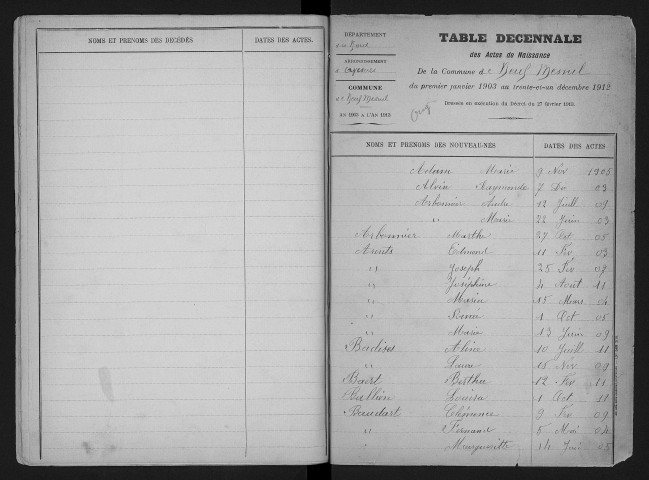 NOMS ET PRÉNOMS DES DÉCÉDÉS DATES DES ACTES.
DÉPARTEMENT
du Nord
ARRONDISSEMENT
d'Avesnes
COMMUNE
de Neuf Mesnil
AN 1903 A L'AN 1912
TABLE DÉCENNALE
des Actes de Naissance
De la Commune de Neuf Mesnil
du premier janvier 1903 au trente-et-un décembre 1912
Dressée en exécution du Décret du 27 février 1912.
NOMS ET PRÉNOMS DES NOUVEAU-NÉS DATES DES ACTES
Adam Marie 9 Nov 1905
Alvin Raymonde 7 Do 03
Arbonnier 12 Juill 09
" Marie 22 Juin 03
Arbonnier Marthe 27 Oct 05
Arents Edmond 11 Fév 03
" Joseph 25 Fév 09
" Joséphine 4 Août 11
" Maria 15 Mars 04
" 1 Oct 05
" Marie 13 Juin 09
Aline 10 Juill 11
" Laure 15 Nov 09
Berthe 12 Fév 11
Louisa 1 Oct 11
Baudart 9 Fév 09
" Fernand 5 Mai 04
" Marguerite 14 Jui 05